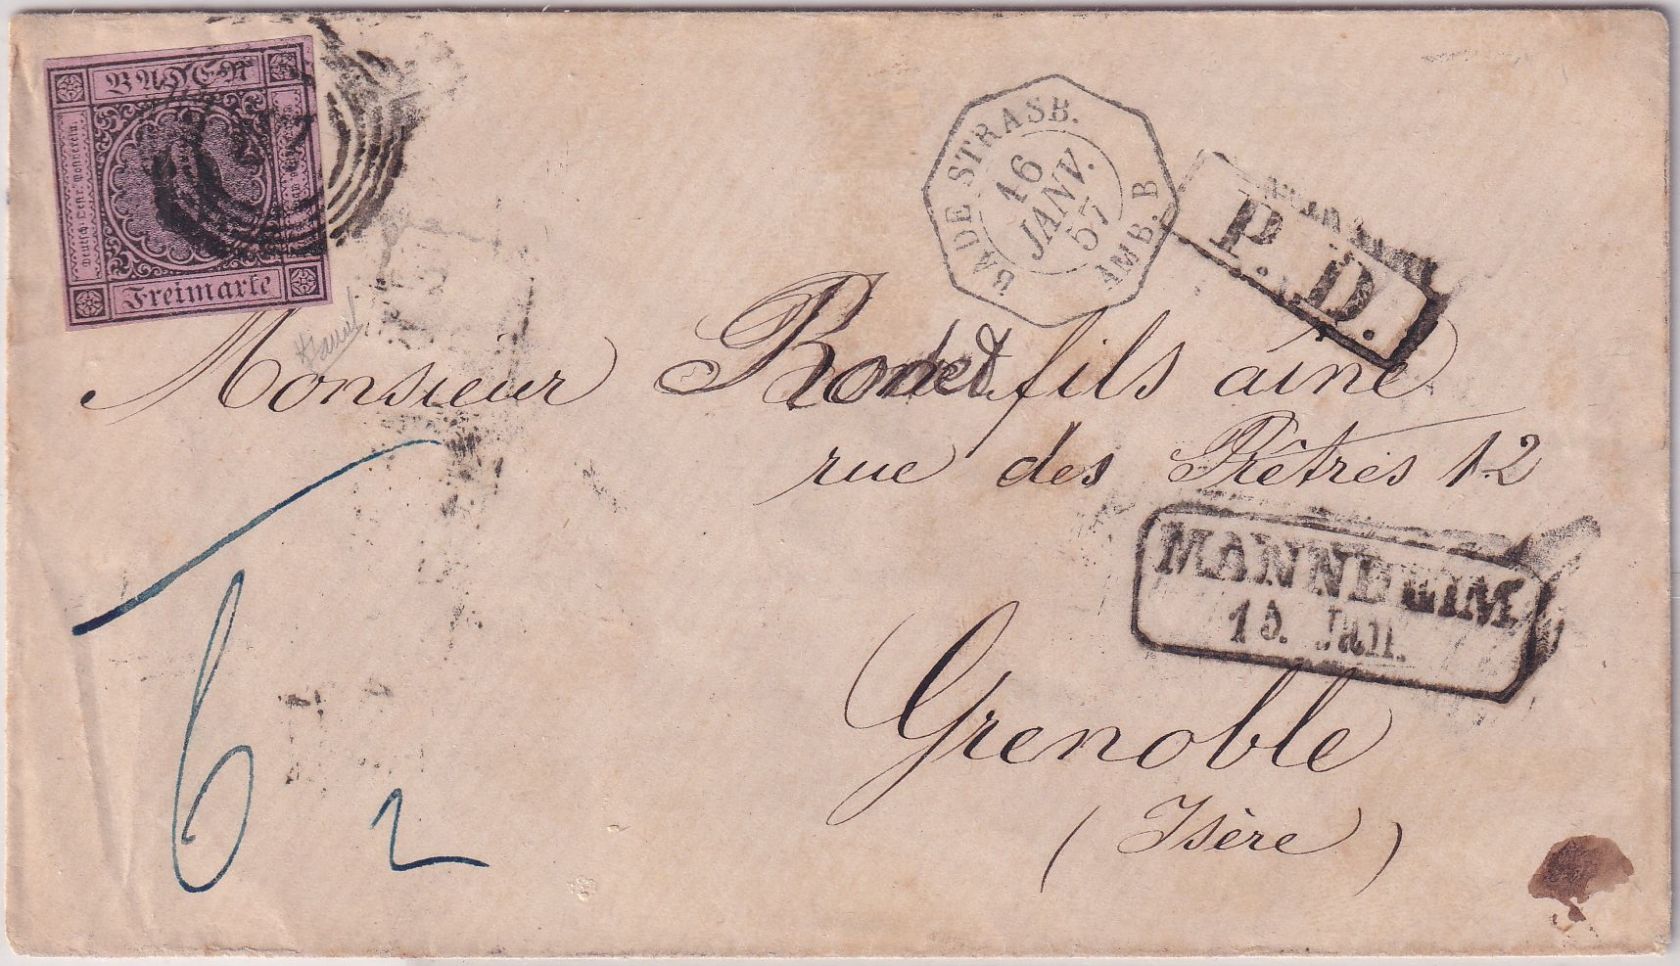 BADEN
Deutsch-Östr. Postverein.
Freimarke
BADE STRASB.
16
JANV.
57
AMB. B
P.D.
Monsieur Rodet fils aîné
rue des Prêtres 12
MANNHEIM
15. Jan.
Grenoble
(Isère)
6
2